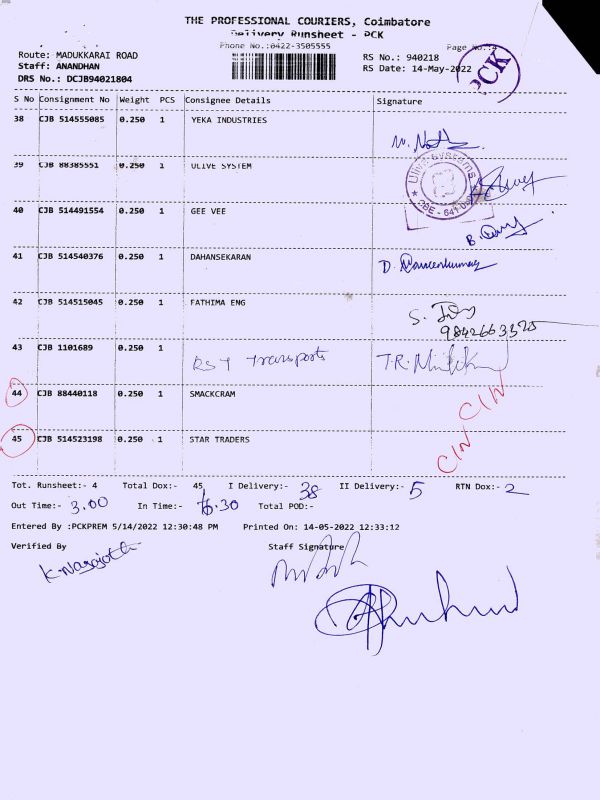 THE PROFESSIONAL COURIERS, Coimbatore
Delivery Runsheet - PCK
Phone No.:0422-3505555
Page No.:4
PCK
Route: MADUKKARAI ROAD
RS No.: 940218
Staff: ANANDHAN
RS Date: 14-May-2022
DRS No.: DCJB94021804
S No Consignment No Weight PCS Consignee Details Signature
38 CJB 514555085 0.250 1 YEKA INDUSTRIES
39 CJB 88385551 0.250 1 ULIVE SYSTEM
40 CJB 514491554 0.250 1 GEE VEE
41 CJB 514540376 0.250 1 DAHANSEKARAN
42 CJB 514515045 0.250 1 FATHIMA ENG
9842663325
43 CJB 1101689 0.250 1 RST Transports
44 CJB 88440118 0.250 1 SMACKCRAM CIN
45 CJB 514523198 0.250 1 STAR TRADERS CIN
Tot. Runsheet:- 4 Total Dox:- 45 I Delivery:- 38 II Delivery:- 5 RTN Dox:- 2
Out Time:- 3.00 In Time:- 6.30 Total POD:-
Entered By :PCKPREM 5/14/2022 12:30:48 PM Printed On: 14-05-2022 12:33:12
Verified By Staff Signature